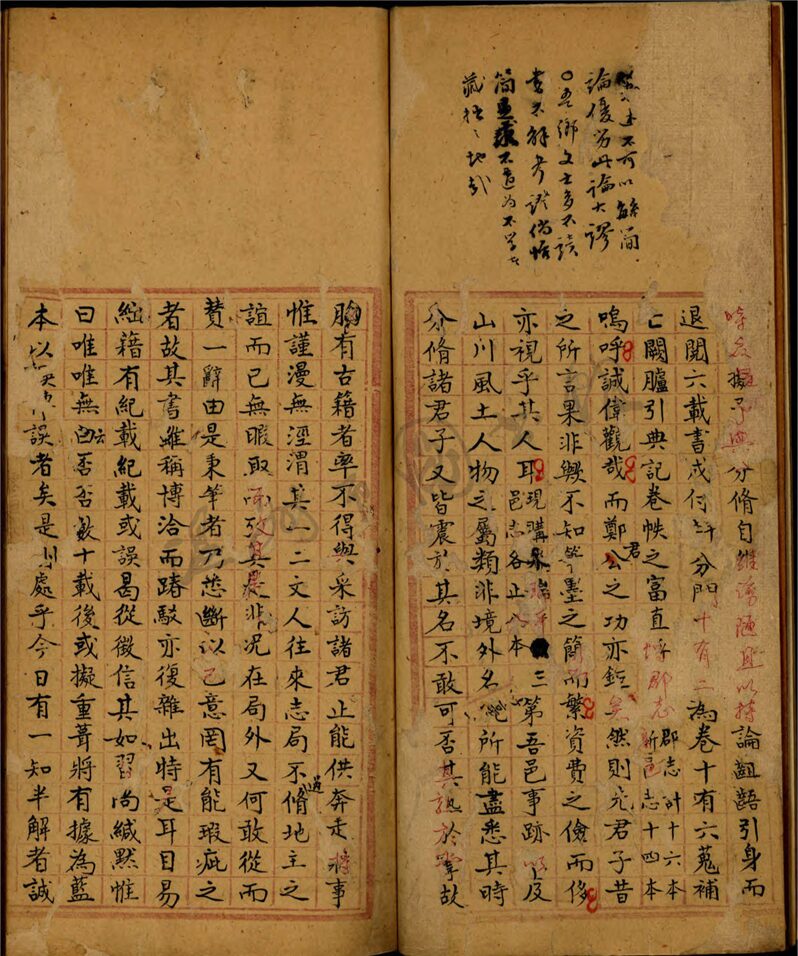 不可以無簡
論優劣此論大謬
〇吾鄉文士多不讀
書不解考證
簡
藏拙之地哉
分脩自
隨
以持論齟齬引身而
退閱六載書成付分門十有二為卷十有六蒐補
亡闕臚引典記卷帙之富直郡志郡志計十六本新邑志十四本
嗚呼誠偉觀哉而鄭君公之功亦鉅矣然則先君子昔
之所言果非歟不知筆墨之簡而繁資費之儉而侈
亦視乎其人耳邑志各止八本三第吾邑事跡以及
山川風土人物之屬類非境外名所能盡悉其時
分脩諸君子又皆震於其名不敢可否其於掌故
胸有古籍者率不得與采訪諸君止能供奔走將事
惟謹漫無涇渭其一二文人往來志局不過脩地主之
誼而已無暇取而攷其是非況在局外又何敢從而
贊一辭由是秉筆者乃悉斷以己意罔有能瑕疵之
者故其書雖稱博洽而踳駁亦復雜出時是耳目易
繼籍有紀載紀載或誤曷從徵信其如習尚緘默惟
曰唯唯無否否數十載後或擬重葺將有據為藍
本以誤者矣是處乎今日有一知半解者誠